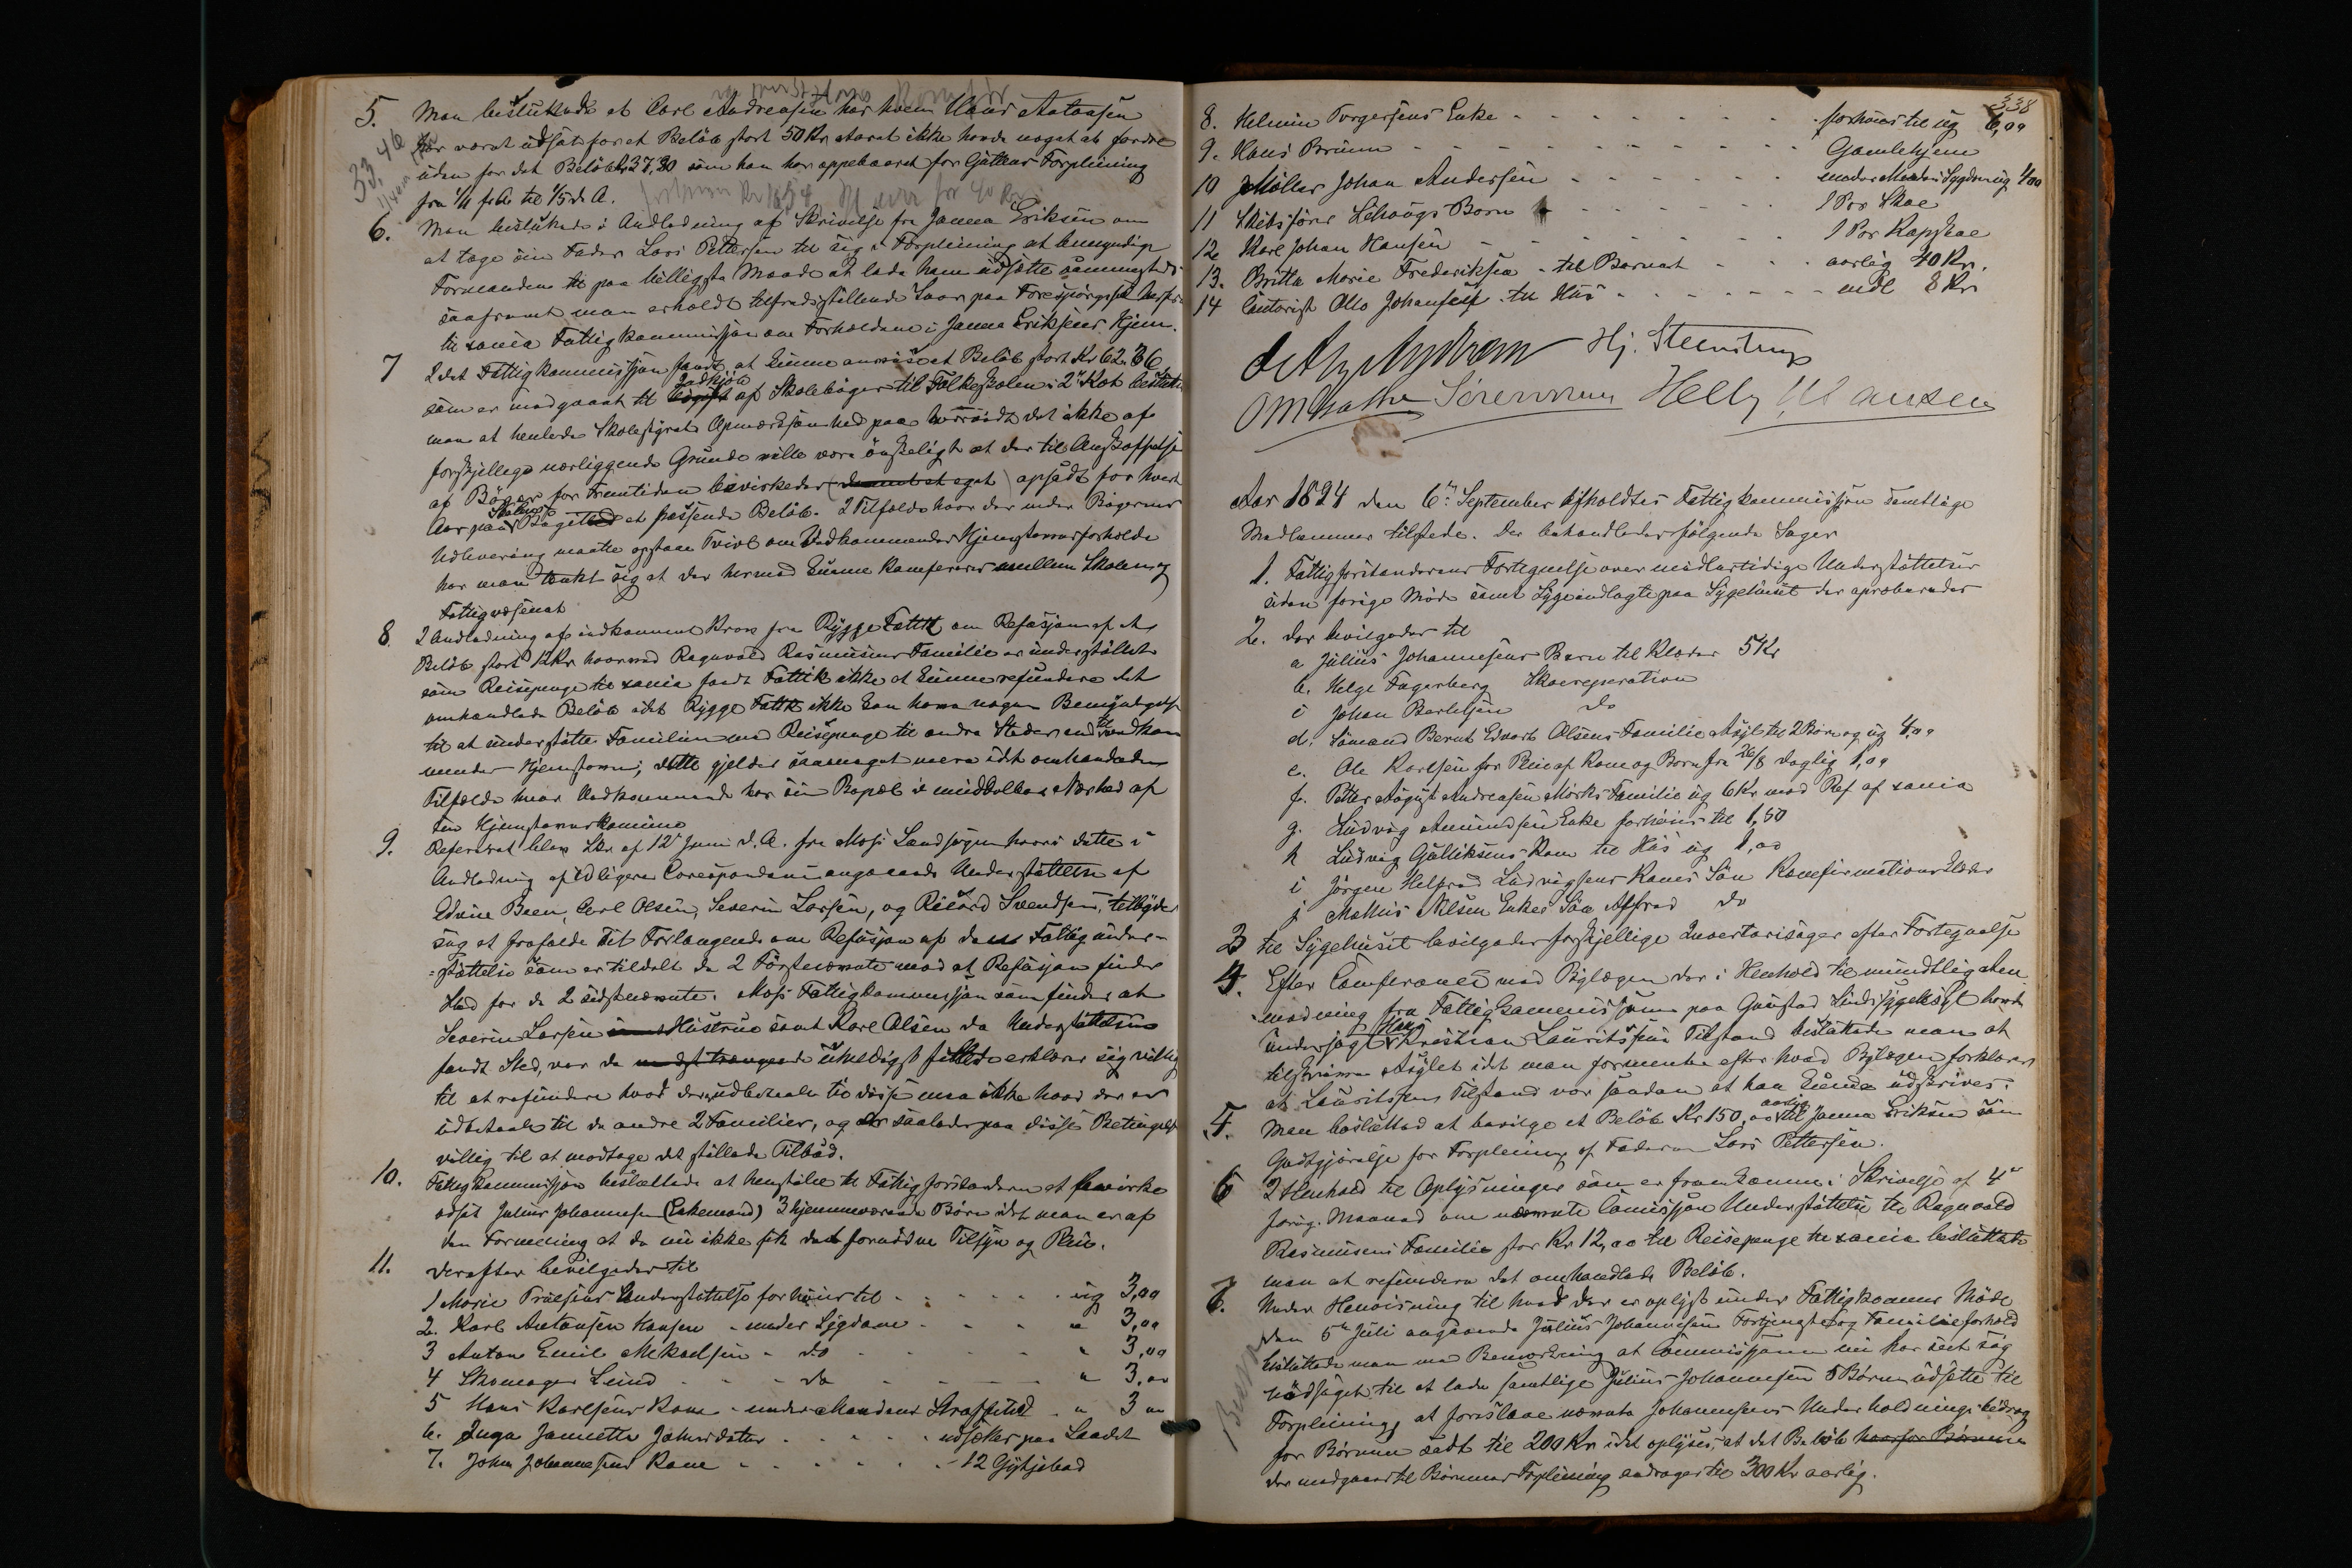 5. Man besluttede at Carl Andreasen har hvem Hans Antonsen
har været udsat for et Beløb stort 50 Kr Aaret ikke havde noget at fordre
uden for det Beløb Kr 37,30 som han har oppebaaret for Guttens Forpleining
fra 1/4 till 1/5 d. A.
6. Man besluttede i Anledning af Skrivelse fra Janna Eriksen om
at tage sin Fader Lars Pettersen til sig i Forpleining at bemyndige
Formanden til paa billigste Maade at lade ham udsætte
saafremt man erholdt tilfredsstillende Svar paa Forespørgsel
til Fattigkommissjon om Forholdene i Janna Eriksens Hjem.
7 I det Fattigkommissjon fandt at kunne anvise et Beløb stort Kr 62.36
som er medgaaet til Indkjøb af Skolebøger til Folkeskolen i 2det Kvt besluttede
man at henlede Skolestyrets Opmærksomhed paa hvorvidt det ikke af
forskjellige nærliggende Grunde vilde være ønskeligt at der til Anskaffelse
af Bøger for Fremtiden bevirkedes (                ) opført for hvert
Aar paa Skolens Budget et passende Beløb. I Tilfælde hvor der under Bøgernes
Udlevering maatte opstaae Tvivl om Vedkommendes Hjemstavnsforholde
har man tænkt sig at der hermed kunne konfereres mellem Skolen og
Fattigvæsenet
8. I Anledning af indkommet Krav fra Rygge Fattk om Refusjon af et
Beløb stort 12 Kr hvormed Ragnvald Rasmusens Familie er understøttet
som Reisepenge til fandt Fattik ikke at kunne refundere det
omhandlede Beløb idet Rygge Fattk ikke kan have nogen Bemyndigelse
til at understøtte Familien med Reisepenge til andre Steder end til vedkom
mendes Hjemstavn; dette gjelder saameget mere idet omhandlede
Tilfælde hvor Vedkommende har sin Bopæl i umiddelbar Nærhed af
sin Hjemstavnskommune
9. Refereret blev Skr af 12te Juni d. A. fra Moss Landsogn hvori dette i
Anledning af tidligere Corespondance angaaende Understøttelse af
Edvin Been, Carl Olsen, Severin Larsen, og Rikard Svendsen, tilbyder
sig at frafalde sit Forlangende om Refusjon af den Fattigunder-
støttelse som er tildelt de 2 Førstnævnte mod at Refusjon finder
Sted for de 2 sidstnævnte. Moss Fattigkommissjon som finder at
Severin Larsen Hustrue samt Karl Olsen da Understøttelsen
fandt Sted, var da erklærer sig villig
til at refundere hvad der er udbetalt til disse men ikke hvad der er
udbetalt til de andre 2 Familier, og er saaledes paa disse Betingelser
villig til at modtage det stillede Tilbud.
10. Fattigkommissjon besluttede at henstille til Fattigforstanderen at bevirke
udsat Julius Johannesen (Enkemand) 3 hjemmeværende Børn idet man er af
den Formening at de nu ikke fik det fornødne Tilsyn og Pleie.
11. Derefter bevilgedes til
1 Marie Trulsens Understøttelse forhøies til - - - - ug 3,00
2. Karl Antonsen Hansen - under Sygdom - - - " 3,00
3 Anton Emil Mikaelsen - do - - - - " 3,00
4 Skomager Lund - - - do - - - - " 3,00
5 Hans Karlsens Kone - under Mandens Straffetid - " 3 "
6. Inga Jannette Johnsdatter - - - - udsættes paa Landet
7. John Johannesens Kone - - - - - 12 Gytjebad
338
8. Helmin Torgersens Enke - - - - - - forhøies til ug 6,00
9. Hans Brunn - - - - - - - Gamlehjem
10 Møller Johan Andersen - - - - - - under Sygdom ug 4,00
11 Skibsfører Lehaugs Barn - - - - - - 1 Par Skoe
12 Karl Johan Hansen - - - - - - - 1 Par Kapskoe
13. Britha Marie Frederiksen - til Barnet - - - aarlig 40 Kr.
14 Otto Johansen til Hus - - - - - - mdl 8 Kr
Hj. Steenstrup
Sørensen Helly M Hansen
Aar 1894 den 6te September afholdtes Fattigkommissjon samtlige
Medlemmer tilstede. Der behandledes følgende Sager
1. Fattigforstanderens Fortegnelse over midlertidige Understøttelser
siden forige Møde samt Syge indlagte paa Sygehuset der aproberedes
2. Der bevilgedes til
a Julius Johannesens Barn til Klæder 5 Kr
b. Helge Fagerberg Skoreperation
c Johan Berletsen do
d. Sømand Bernt Edvart Olsens Familie Asyl til 2 Børn og ug 4,00
e. Ole Karlsen for Pleie af Kone og Barn fra 26/8 daglig 1,00
f. Petter August Andreasen Mørks Familie ug 6 Kr mod Ref af
g. Ludvig Amundsen Enke forhøies til 1,50
h Ludvig Gulliksens Kone til Hus ug 1,00
i Jørgen Helfred Ludvigsens Kones Søn Konfirmationsklæder
j Mathis Nilsen Enkes Søn Alfred do
3 til Sygehuset bevilgedes forskjellige Inventarisager efter Fortegnelse
4. Efter Conferance med Bylægen der i Henhold til mundtlig Anm
modning fra Fattigkommissjonen paa Gaustad Sindssygeasyl havde
undersøgt Hans Kristian Lauritsens Tilstand besluttede man at
tilskrive Asylet idet man formente efter hvad Bylægen forklarer
at Lauritsens Tilstand var saadan at han kunde udskrives.
5. Man besluttede at bevilge et Beløb Kr 150,00 aarlig til Janna Eriksen som
Godtgjørelse for Forpleining af Faderen Lars Pettersen.
6 I Henhold til Oplysninger som er fremkomne i Skrivelse af 4de
forig. Maaned om nævnte Comissjon Understøttelse til Ragnvald
Rasmusens Familie stor Kr 12,00 til Reisepenge til besluttede
man at refundere det omhandlede Beløb.
7. Under Henvisning til hvad der er oplyst under Fattigkommns Møde
den 5te Juli angaaende Julius Johannesen Fortjeneste og Familieforhold
besluttede man med Bemærkning at Commissjonen nu har seet sig
nødsaget til at lade samtlige Julius Johannesen 5 Børn udsætte til
Forpleining at foreslaae nævnte Johannesens Underholdningsbidrag
for Børnene sadt til 200 Kr idet oplyses, at det Beløb hvorfor Børnene
der medgaaer til Børnenes Forpleining andrager til 300 Kr aarlig.